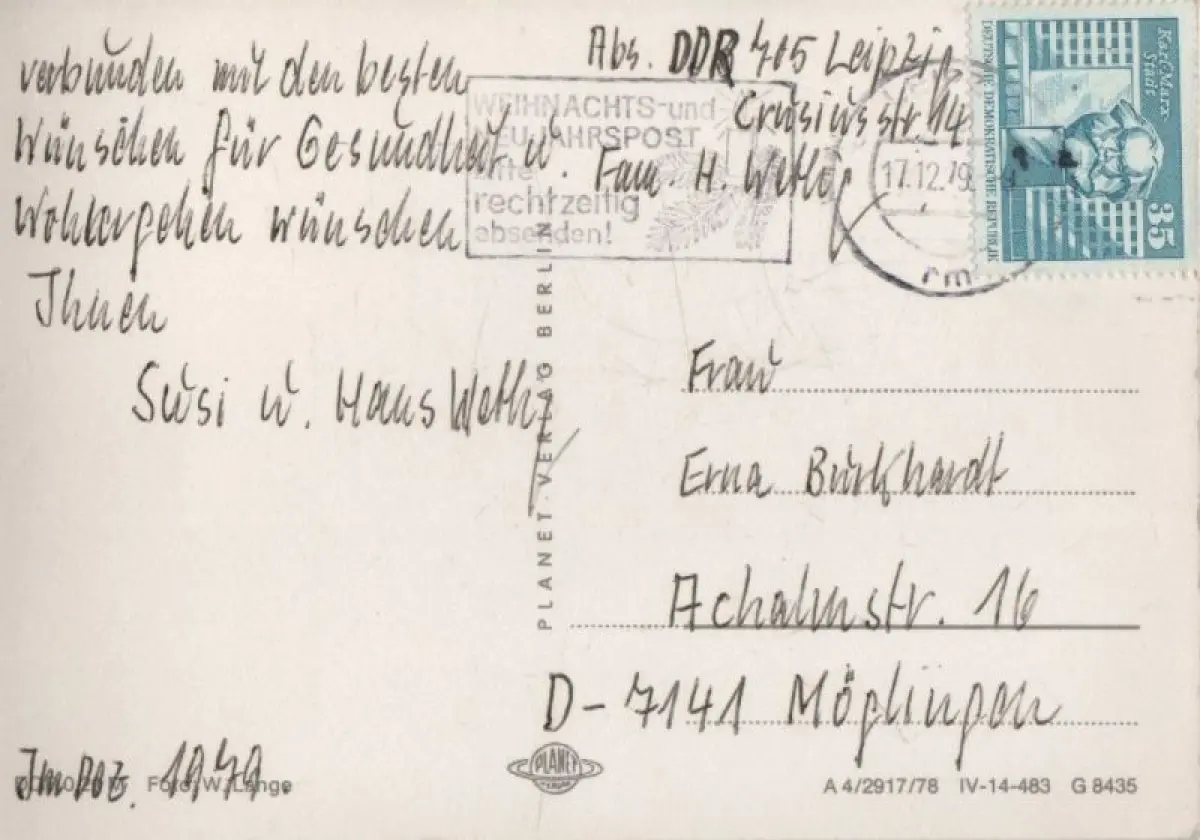 verbunden mit den besten
Wünschen für Gesundheit u.
Wohlergehen wünschen
Ihnen
Susi u. Hans Weth
Im Dez. 1979.
Foto: W. Lange
Abs. DDR 705 Leipzig
Crusiusstr. 14
Fam. H. Weth
WEIHNACHTS-und
NEUJAHRSPOST
bitte
rechtzeitig
absenden!
17.12.79
rm
Karl-Marx-
Stadt
35
DEUTSCHE DEMOKRATISCHE REPUBLIK
PLANET-VERLAG BERLIN
Frau
Erna Burkhardt
Achalmstr. 16
D-7141 Möglingen
PLANET
A 4/2917/78 IV-14-483 G 8435